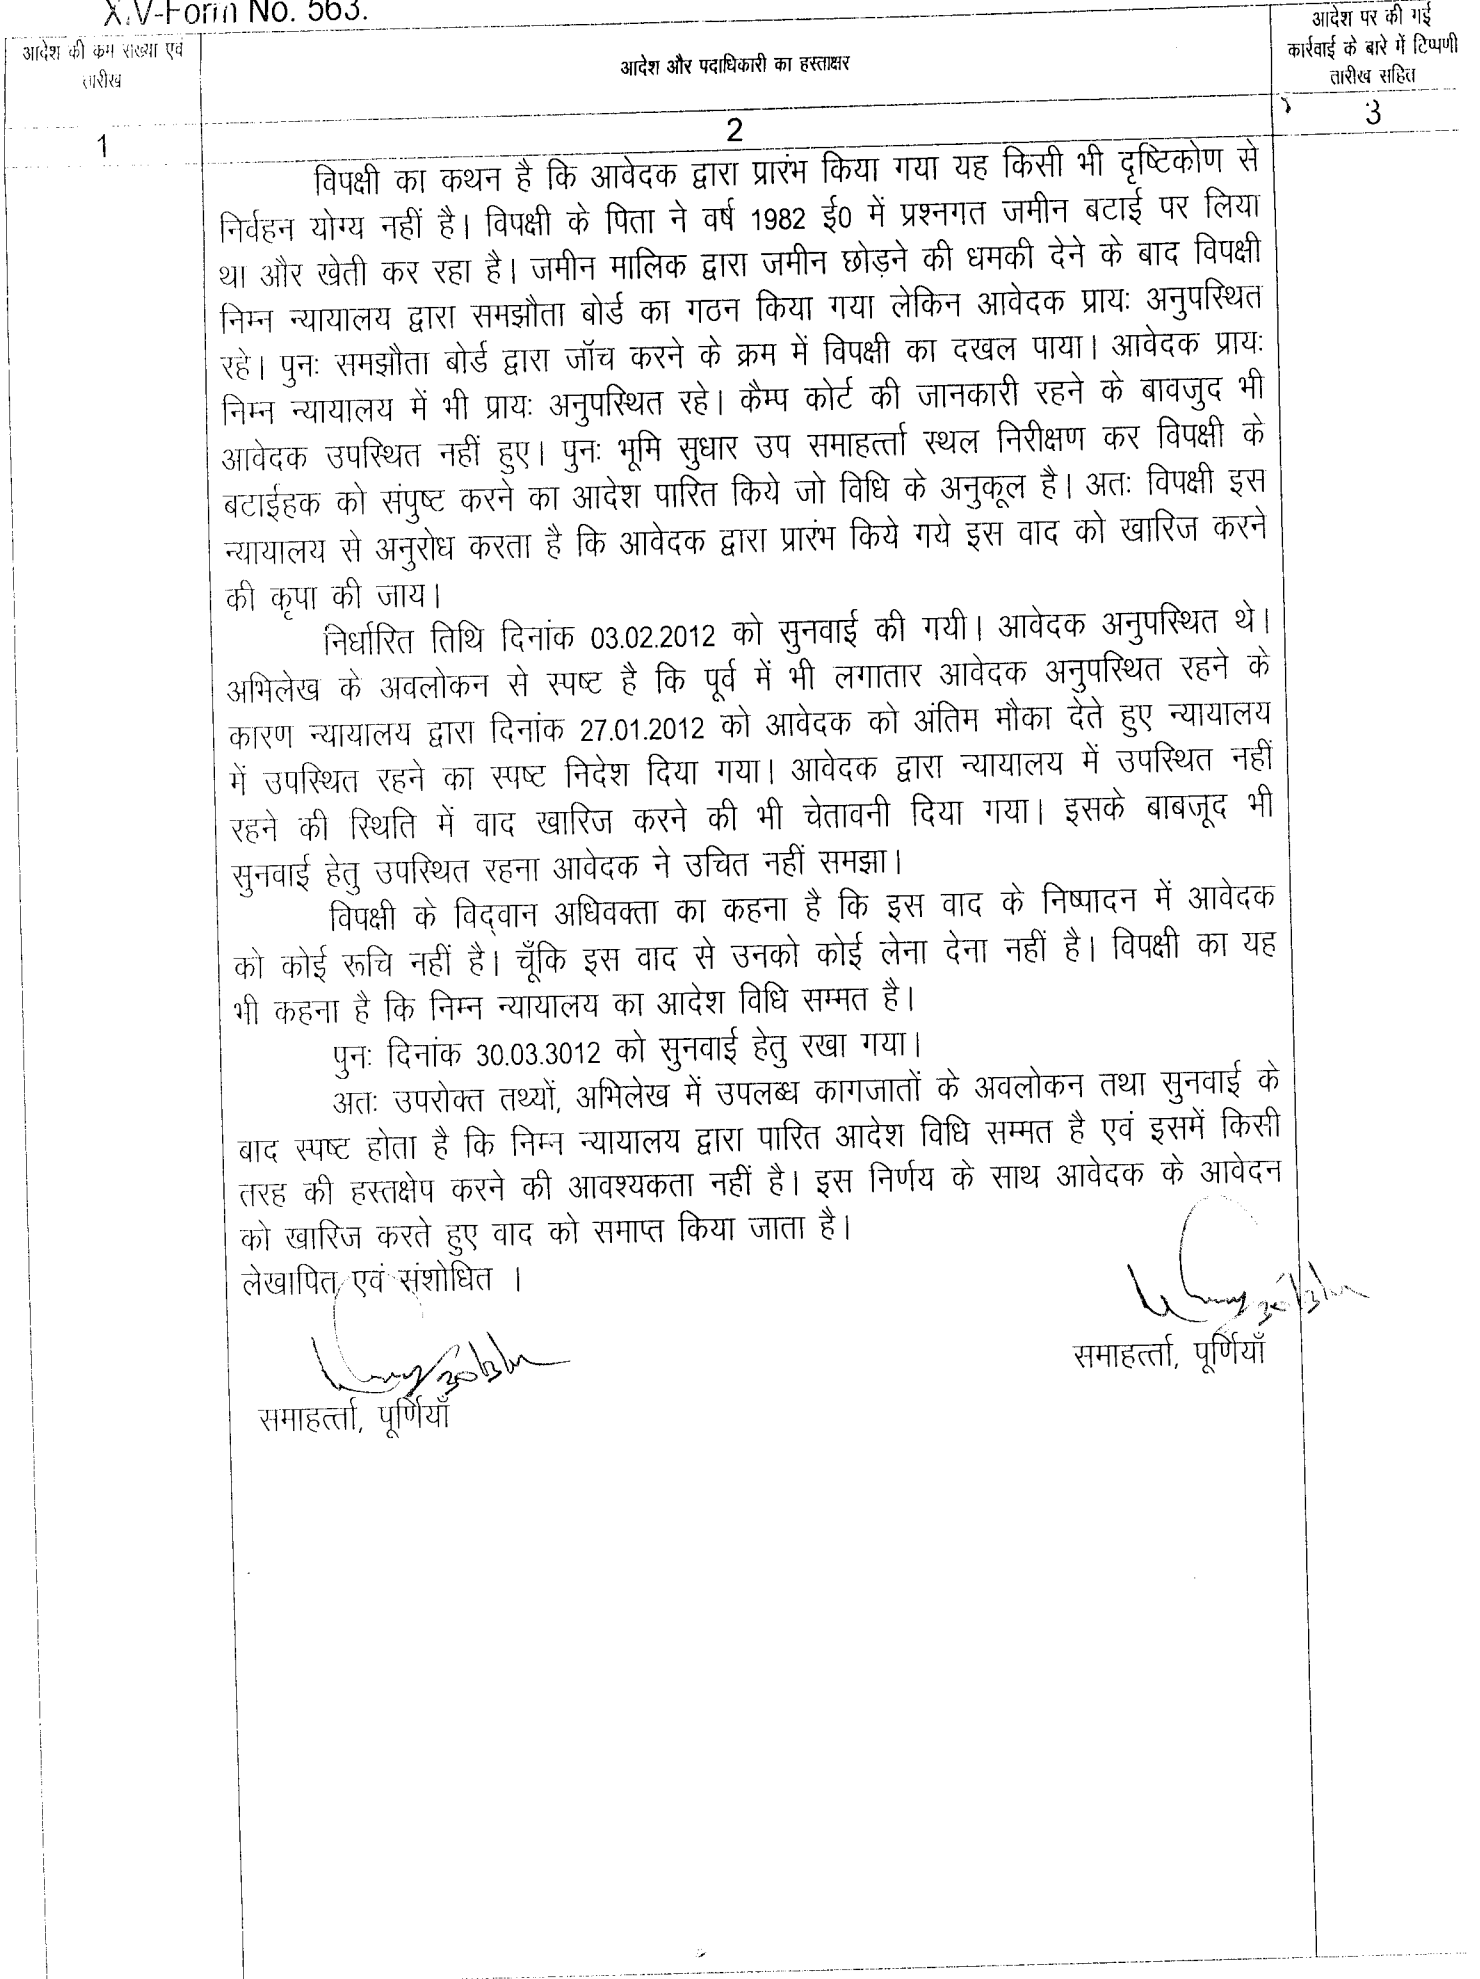 X.V-Form No. 563.
आदेश की कम संख्या एवं
तारीख
आदेश और पदाधिकारी का हस्ताक्षर
आदेश पर की गई
कार्रवाई के बारे में टिप्पणी
तारीख सहित
1
2
3
विपक्षी का कथन है कि आवेदक द्वारा प्रारंभ किया गया यह किसी भी दृष्टिकोण से
निर्वहन योग्य नहीं है। विपक्षी के पिता ने वर्ष 1982 ई0 में प्रश्नगत जमीन बटाई पर लिया
था और खेती कर रहा है। जमीन मालिक द्वारा जमीन छोड़ने की धमकी देने के बाद विपक्षी
निम्न न्यायालय द्वारा समझौता बोर्ड का गठन किया गया लेकिन आवेदक प्रायः अनुपस्थित
रहे। पुनः समझौता बोर्ड द्वारा जॉच करने के क्रम में विपक्षी का दखल पाया। आवेदक प्रायः
निम्न न्यायालय में भी प्रायः अनुपस्थित रहे। कैम्प कोर्ट की जानकारी रहने के बावजुद भी
आवेदक उपस्थित नहीं हुए। पुनः भूमि सुधार उप समाहर्त्ता स्थल निरीक्षण कर विपक्षी के
बटाईहक को संपुष्ट करने का आदेश पारित किये जो विधि के अनुकूल है। अतः विपक्षी इस
न्यायालय से अनुरोध करता है कि आवेदक द्वारा प्रारंभ किये गये इस वाद को खारिज करने
की कृपा की जाय।
निर्धारित तिथि दिनांक 03.02.2012 को सुनवाई की गयी। आवेदक अनुपस्थित थे।
अभिलेख के अवलोकन से स्पष्ट है कि पूर्व में भी लगातार आवेदक अनुपस्थित रहने के
कारण न्यायालय द्वारा दिनांक 27.01.2012 को आवेदक को अंतिम मौका देते हुए न्यायालय
में उपस्थित रहने का स्पष्ट निदेश दिया गया। आवेदक द्वारा न्यायालय में उपस्थित नहीं
रहने की स्थिति में वाद खारिज करने की भी चेतावनी दिया गया। इसके बाबजूद भी
सुनवाई हेतु उपस्थित रहना आवेदक ने उचित नहीं समझा।
विपक्षी के विद्वान अधिवक्ता का कहना है कि इस वाद के निष्पादन में आवेदक
को कोई रूचि नहीं है। चूँकि इस वाद से उनको कोई लेना देना नहीं है। विपक्षी का यह
भी कहना है कि निम्न न्यायालय का आदेश विधि सम्मत है।
पुनः दिनांक 30.03.3012 को सुनवाई हेतु रखा गया।
अतः उपरोक्त तथ्यों, अभिलेख में उपलब्ध कागजातों के अवलोकन तथा सुनवाई के
बाद स्पष्ट होता है कि निम्न न्यायालय द्वारा पारित आदेश विधि सम्मत है एवं इसमें किसी
तरह की हस्तक्षेप करने की आवश्यकता नहीं है। इस निर्णय के साथ आवेदक के आवेदन
को खारिज करते हुए वाद को समाप्त किया जाता है।
लेखापित एवं संशोधित ।
समाहर्त्ता, पूर्णियाँ
समाहर्त्ता, पूर्णियाँ